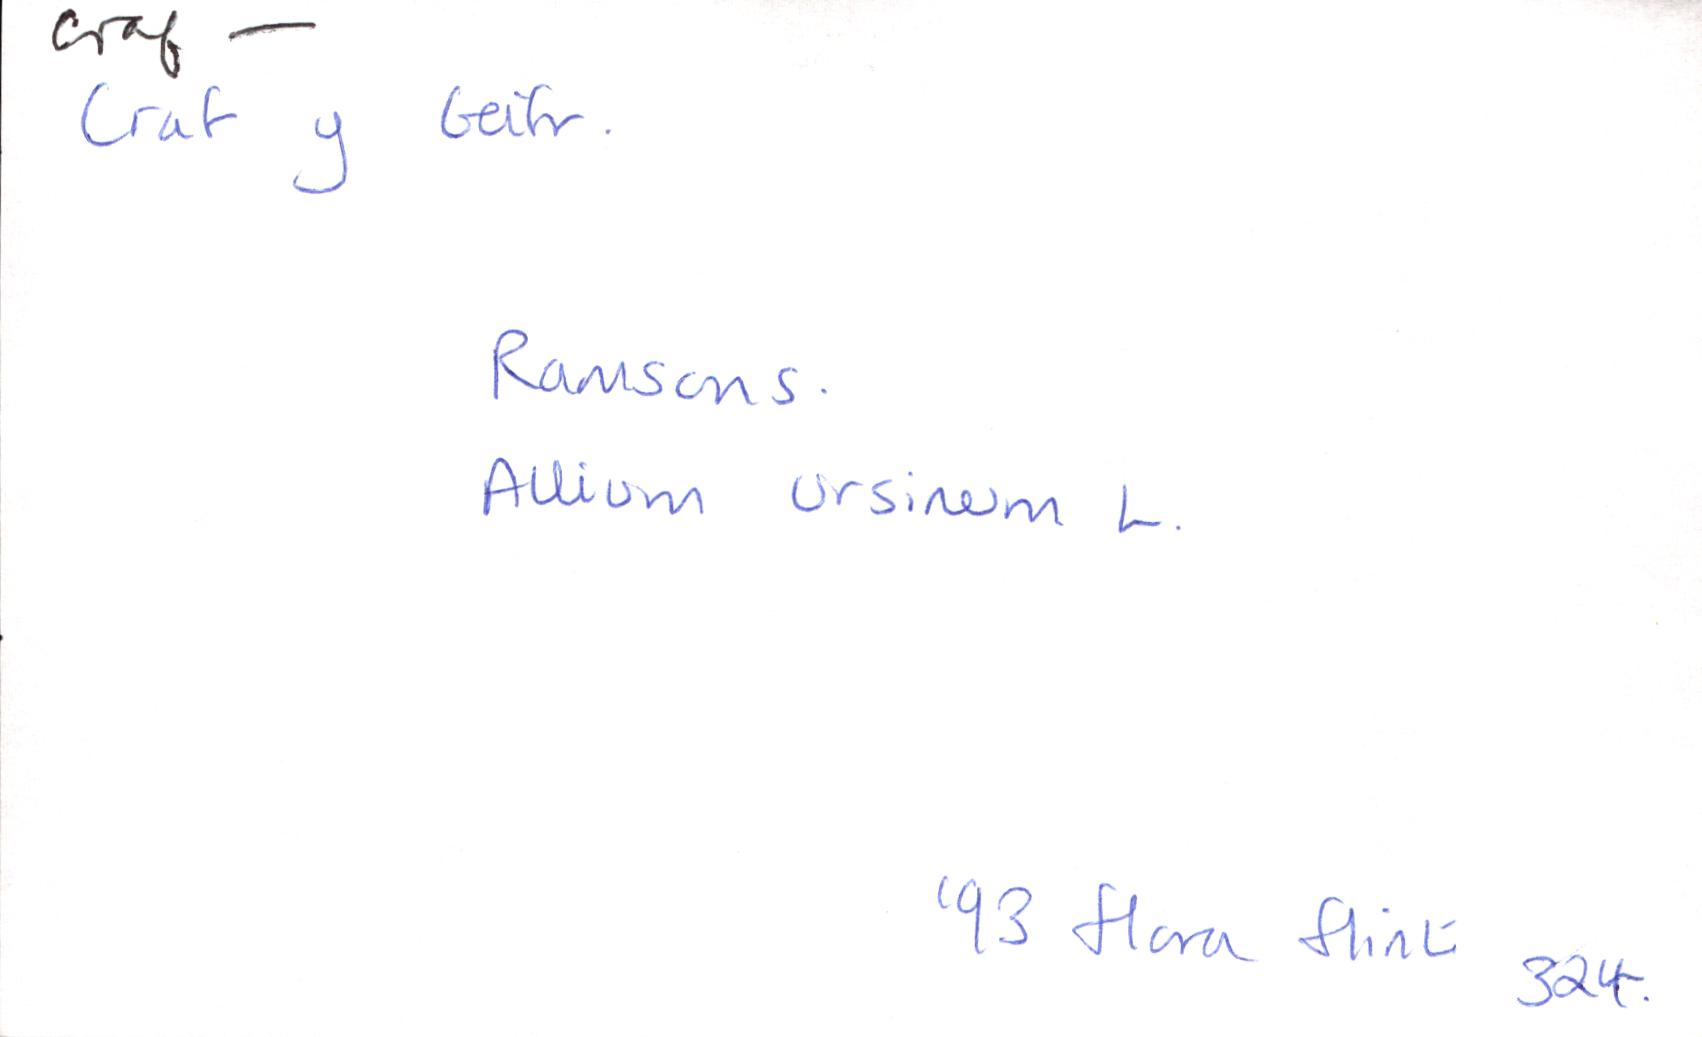 craf —
Craf y Geifr.
Ramsons.
Allium ursinum L.
'93 Flora Flint
324.